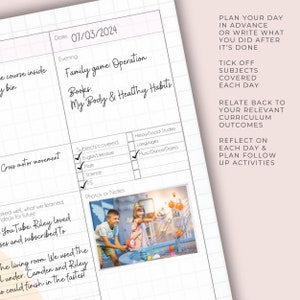 Date: 07/03/2024
Evening:
Family game: Operation
Books:
My Body & Healthy Habits
e course inside
y bin
Cross motor movement
Subjects covered:
English/Literature
Math
Science
Hass/Social Studies
Languages
Music/Dance/Drama
Photos or Notes
worked well, what we learned,
ideas for future
YouTube Riley loved
ses and subscribed to
the living room. We used the
l under. Camden and Riley
o could finish in the fastest
PLAN YOUR DAY
IN ADVANCE
OR WRITE WHAT
YOU DID AFTER
IT'S DONE
TICK OFF
SUBJECTS
COVERED
EACH DAY
RELATE BACK TO
YOUR RELEVANT
CURRICULUM
OUTCOMES
REFLECT ON
EACH DAY &
PLAN FOLLOW
UP ACTIVITIES